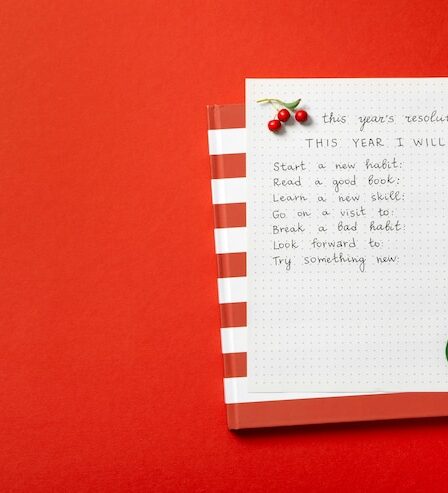 this year's resolut
THIS YEAR I WILL
Start a new habit:
Read a good book:
Learn a new skill:
Go on a visit to:
Break a bad habit:
Look forward to:
Try something new: